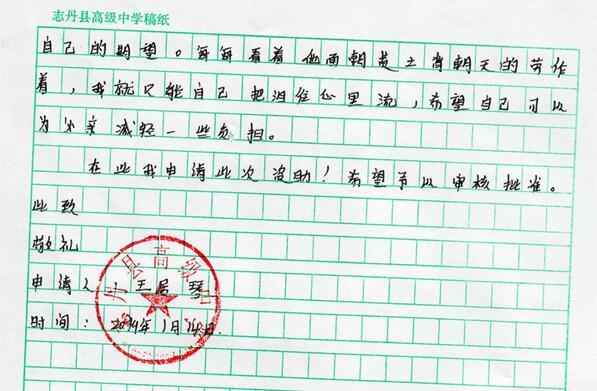 志丹县高级中学稿纸
自己的期望。每每看着他面朝黄土背朝天的劳作
着，我就只能自己把泪往心里流，希望自己可以
为父亲减轻一些负担。
在此我申请此次资助！希望予以审核批准。
此致
敬礼
申请人：王居琴
时间：2014年1月14日.
县高级中